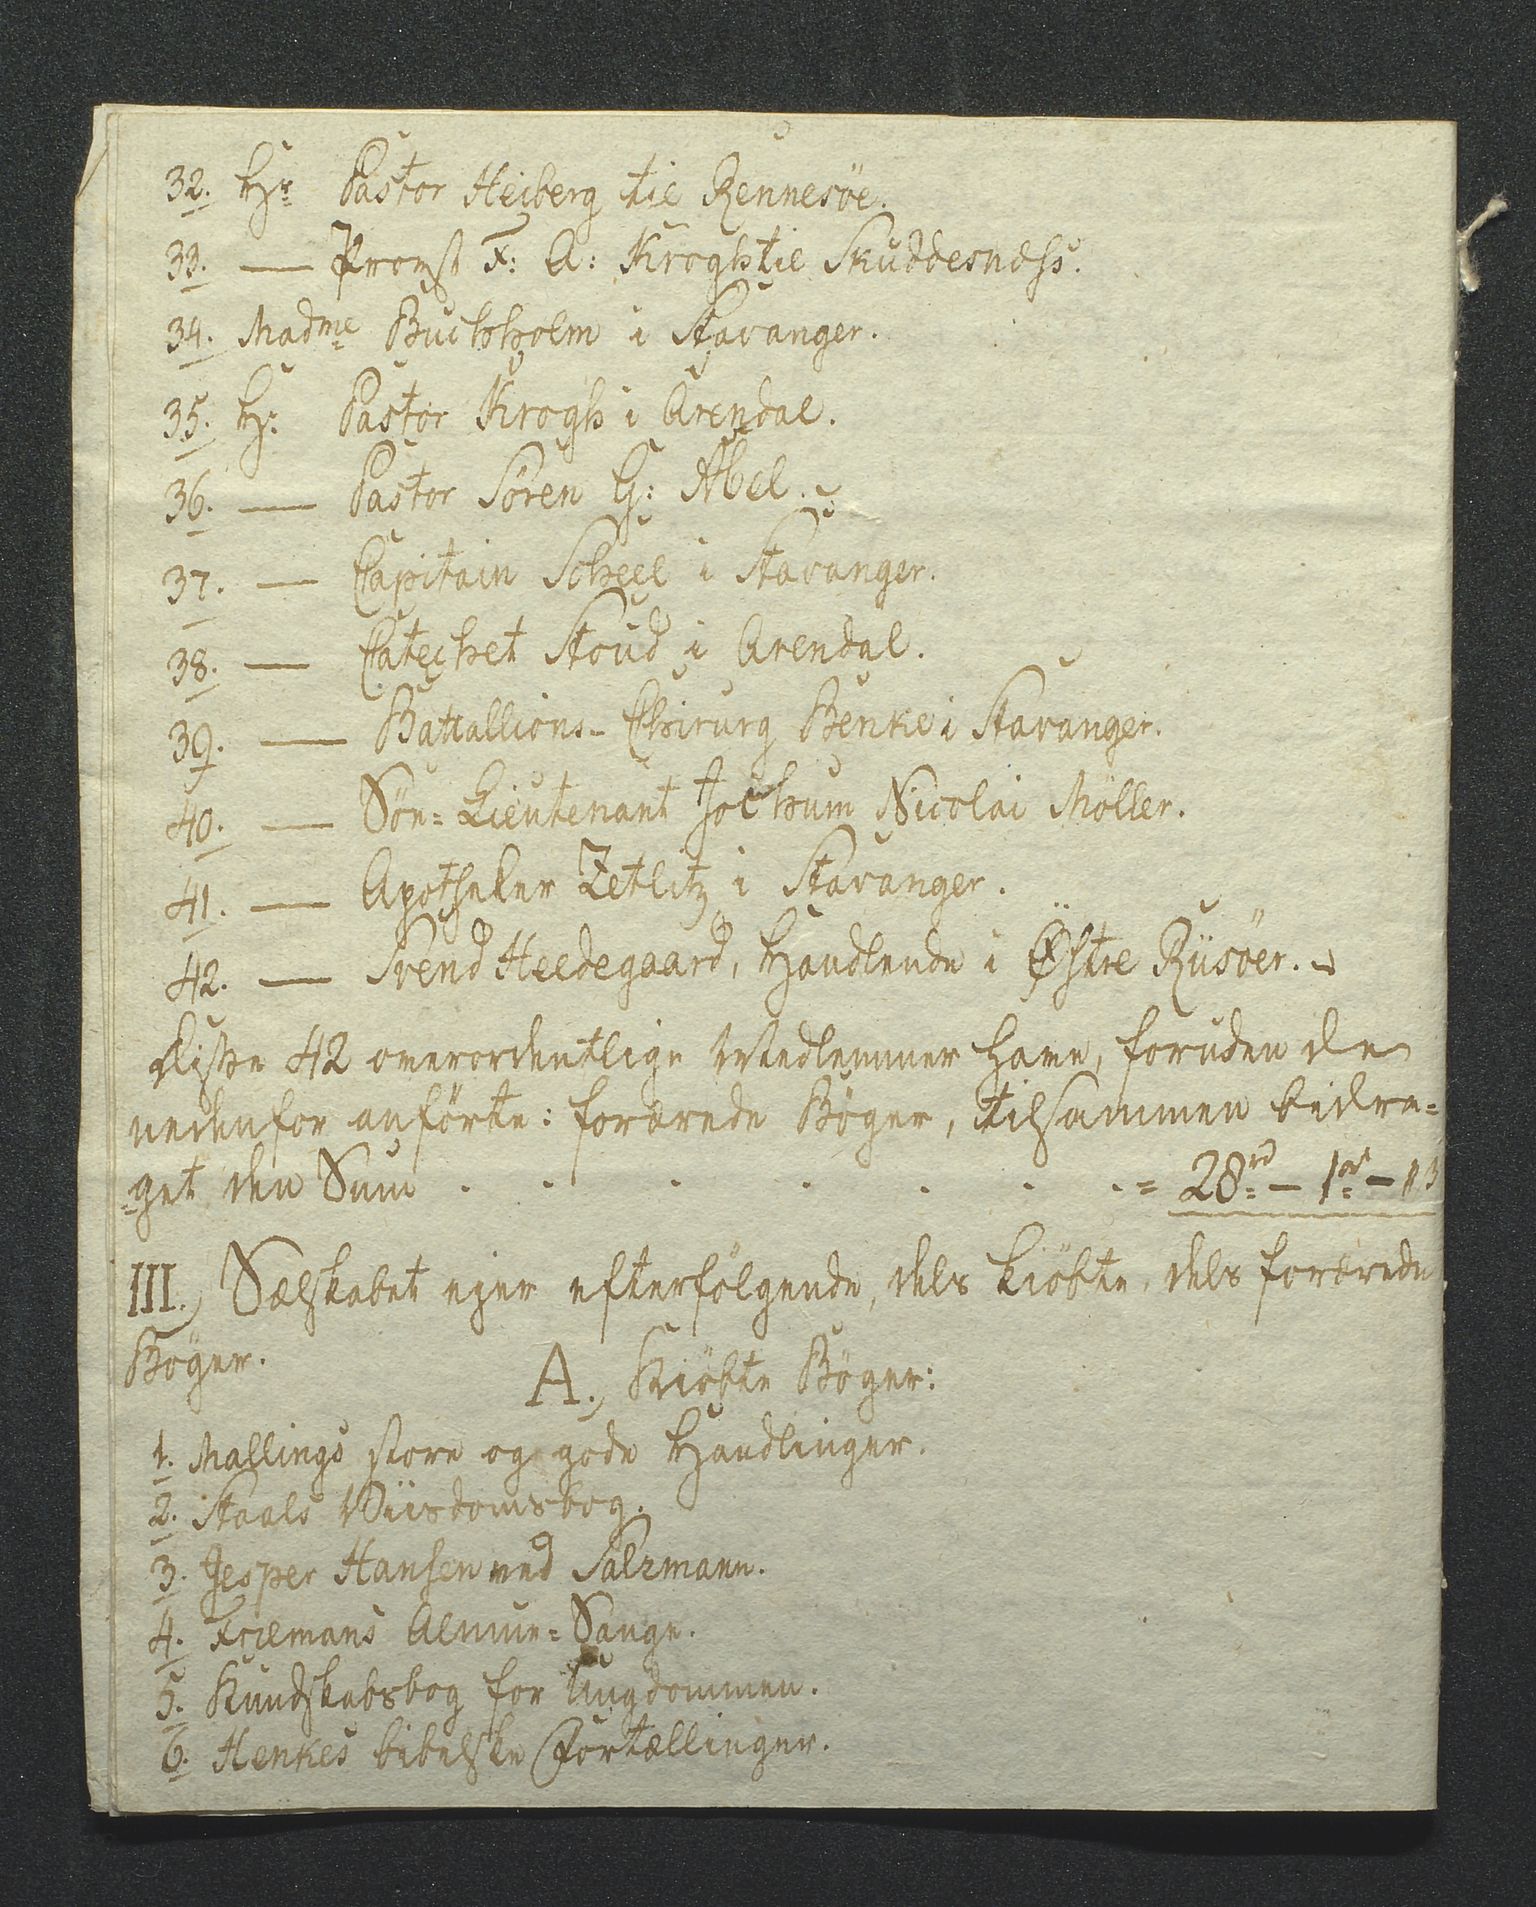 32. Hr Pastor Heiberg til Rennesöe.
33. — Provst F: A: Krogh til Skuddesnæss.
34. Madme Buchholm i Stavanger.
35. H: Pastor Krogh i Arendal.
36. — Pastor Sören G: Abel.
37. — Capitain Scheel i Stavanger.
38. — Catechet Stoud i Arendal.
39. — Battallions-Chirurg Benke i Stavanger.
40. — Sön=Lieutenant Jochum Nicolai Möller.
41. — Apotheker Zetlitz i Stavanger.
42. — Svend Heedegaard, Handlende i Östre Riisöer.
Disse 42 overordentlige Medlemmer have, foruden de
nedenfor anförte: forærede Böger, tilsammen bidra=
=get den Sum . . . . . . . = 28rd — 1ort — 13
III. Sælskabet ejer efterfölgende, dels kiöbte, dels forærede
Böger.
A. Kiöbte Böger:
1. Mallings store og gode Handlinger.
2. Staals Viisdomsbog.
3. Jesper Hansen ved Salzmann.
4. Friemans Almue=Sange.
5. Kundskabsbog for Ungdommen.
6. Henkes bibelske Fortællinger.